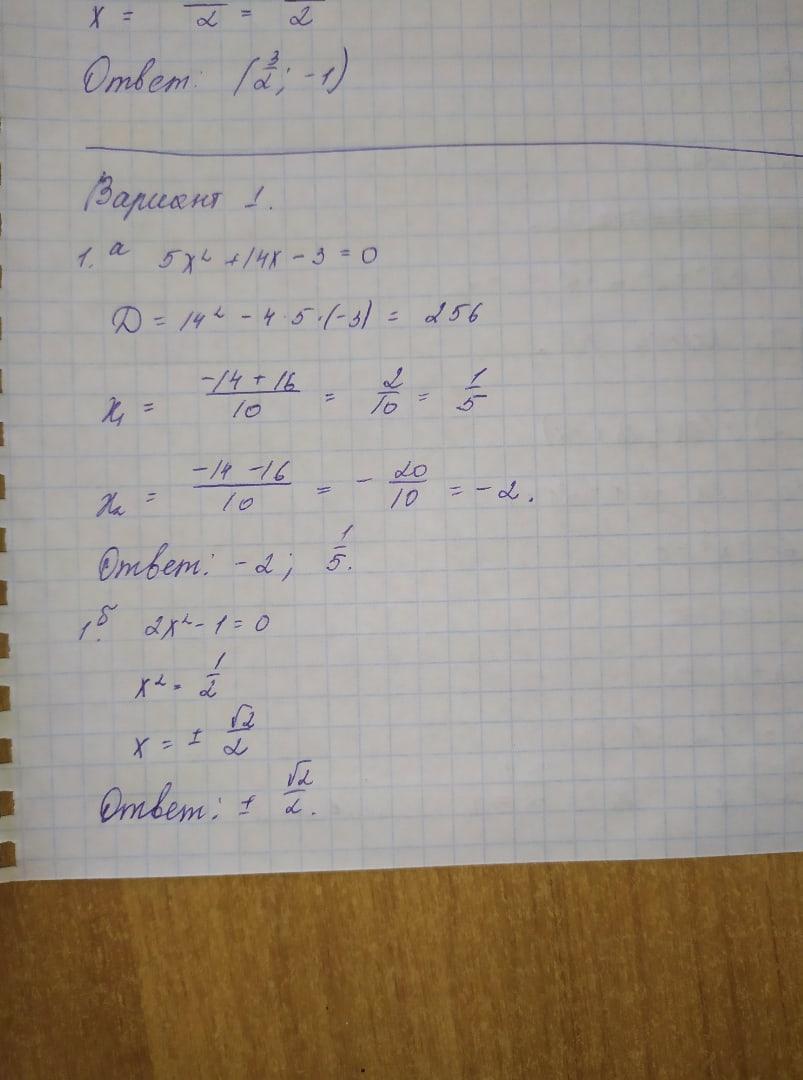 x = /2 = /2
Ответ: (3/2; -1)
Вариант 1.
1. а 5x² + 14x - 3 = 0
D = 14² - 4 · 5 · (-3) = 256
x₁ = (-14 + 16)/10 = 2/10 = 1/5
x₂ = (-14 - 16)/10 = - 20/10 = -2.
Ответ: -2; 1/5.
1. б 2x² - 1 = 0
x² = 1/2
x = ± √2/2
Ответ: ± √2/2.